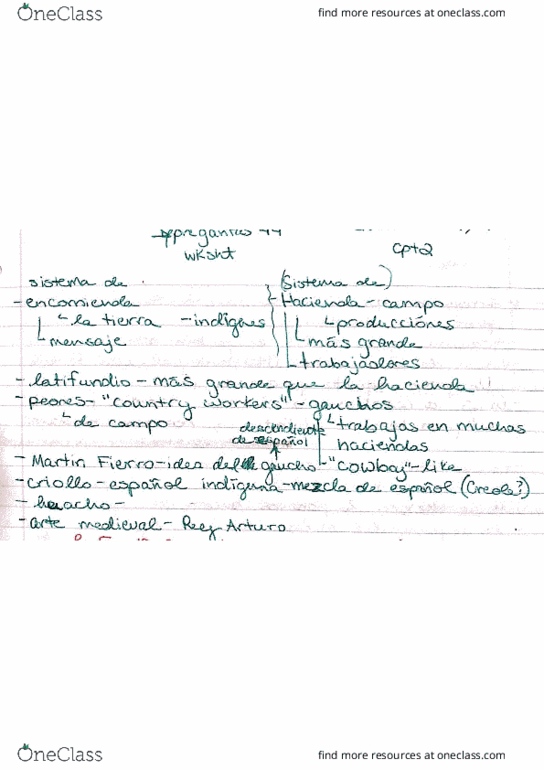 OneClass
find more resources at oneclass.com
wksht
Cpt2
sistema de
(Sistema de)
-encomienda
Hacienda-campo
la tierra -indígenes
producciónes
mensaje
más grande
trabajadores
-latifundio-más grande que la hacienda
-peones-"country workers"-gauchos
de campo
descendiente de español
trabajas en muchas haciendas
-Martin Fierro-idea del gaucho-"cowboy"-like
-criollo-español indíguna-mezcla de español (Creola?)
-arte medieval- Rey Arturo
OneClass
find more resources at oneclass.com